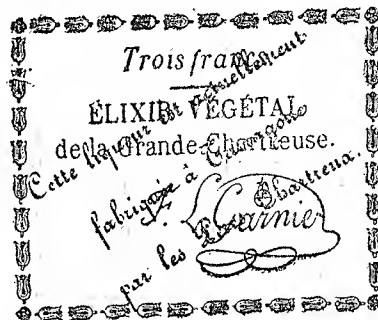 Trois francs
ÉLIXIR VÉGÉTAL
de la Grande-Chartreuse.
Cette liqueur est actuellement
fabriquée à Tarragone
par les Pères Chartreux.
L. Garnier